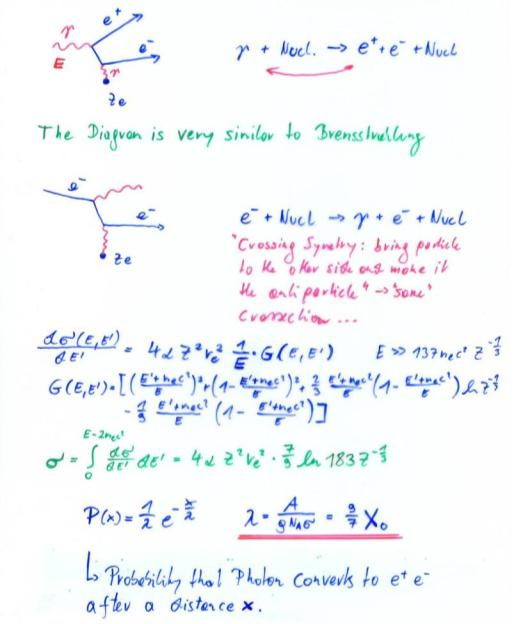 γ e⁺ e⁻ γ + Nucl. → e⁺ + e⁻ + Nucl
E γ
Ze
The Diagram is very similar to Bremsstrahlung
e⁻ e⁻ e⁻ + Nucl → γ + e⁻ + Nucl
Ze "Crossing Symetry: bring particle
to the other side and make it
the anti particle" → 'same'
Crossection ...
dσ(E,E')/dE' = 4α Z² rₑ² 1/E · G(E,E') E >> 137 mₑc² Z^-1/3
G(E,E') = [((E'+mₑc²)/E)² + (1 - (E'+mₑc²)/E)² + 2/3 (E'+mₑc²)/E (1 - (E'+mₑc²)/E) ln Z^-1/3
- 1/9 (E'+mₑc²)/E (1 - (E'+mₑc²)/E)]
σ = ∫₀^(E-2mₑc²) dσ/dE' dE' = 4α Z² rₑ² · 7/9 ln 183 Z^-1/3
P(x) = 1/λ e^(-x/λ) λ = A/(ρ N_A σ) = 9/7 X₀
↳ Probability that Photon converts to e⁺ e⁻
after a distance x.